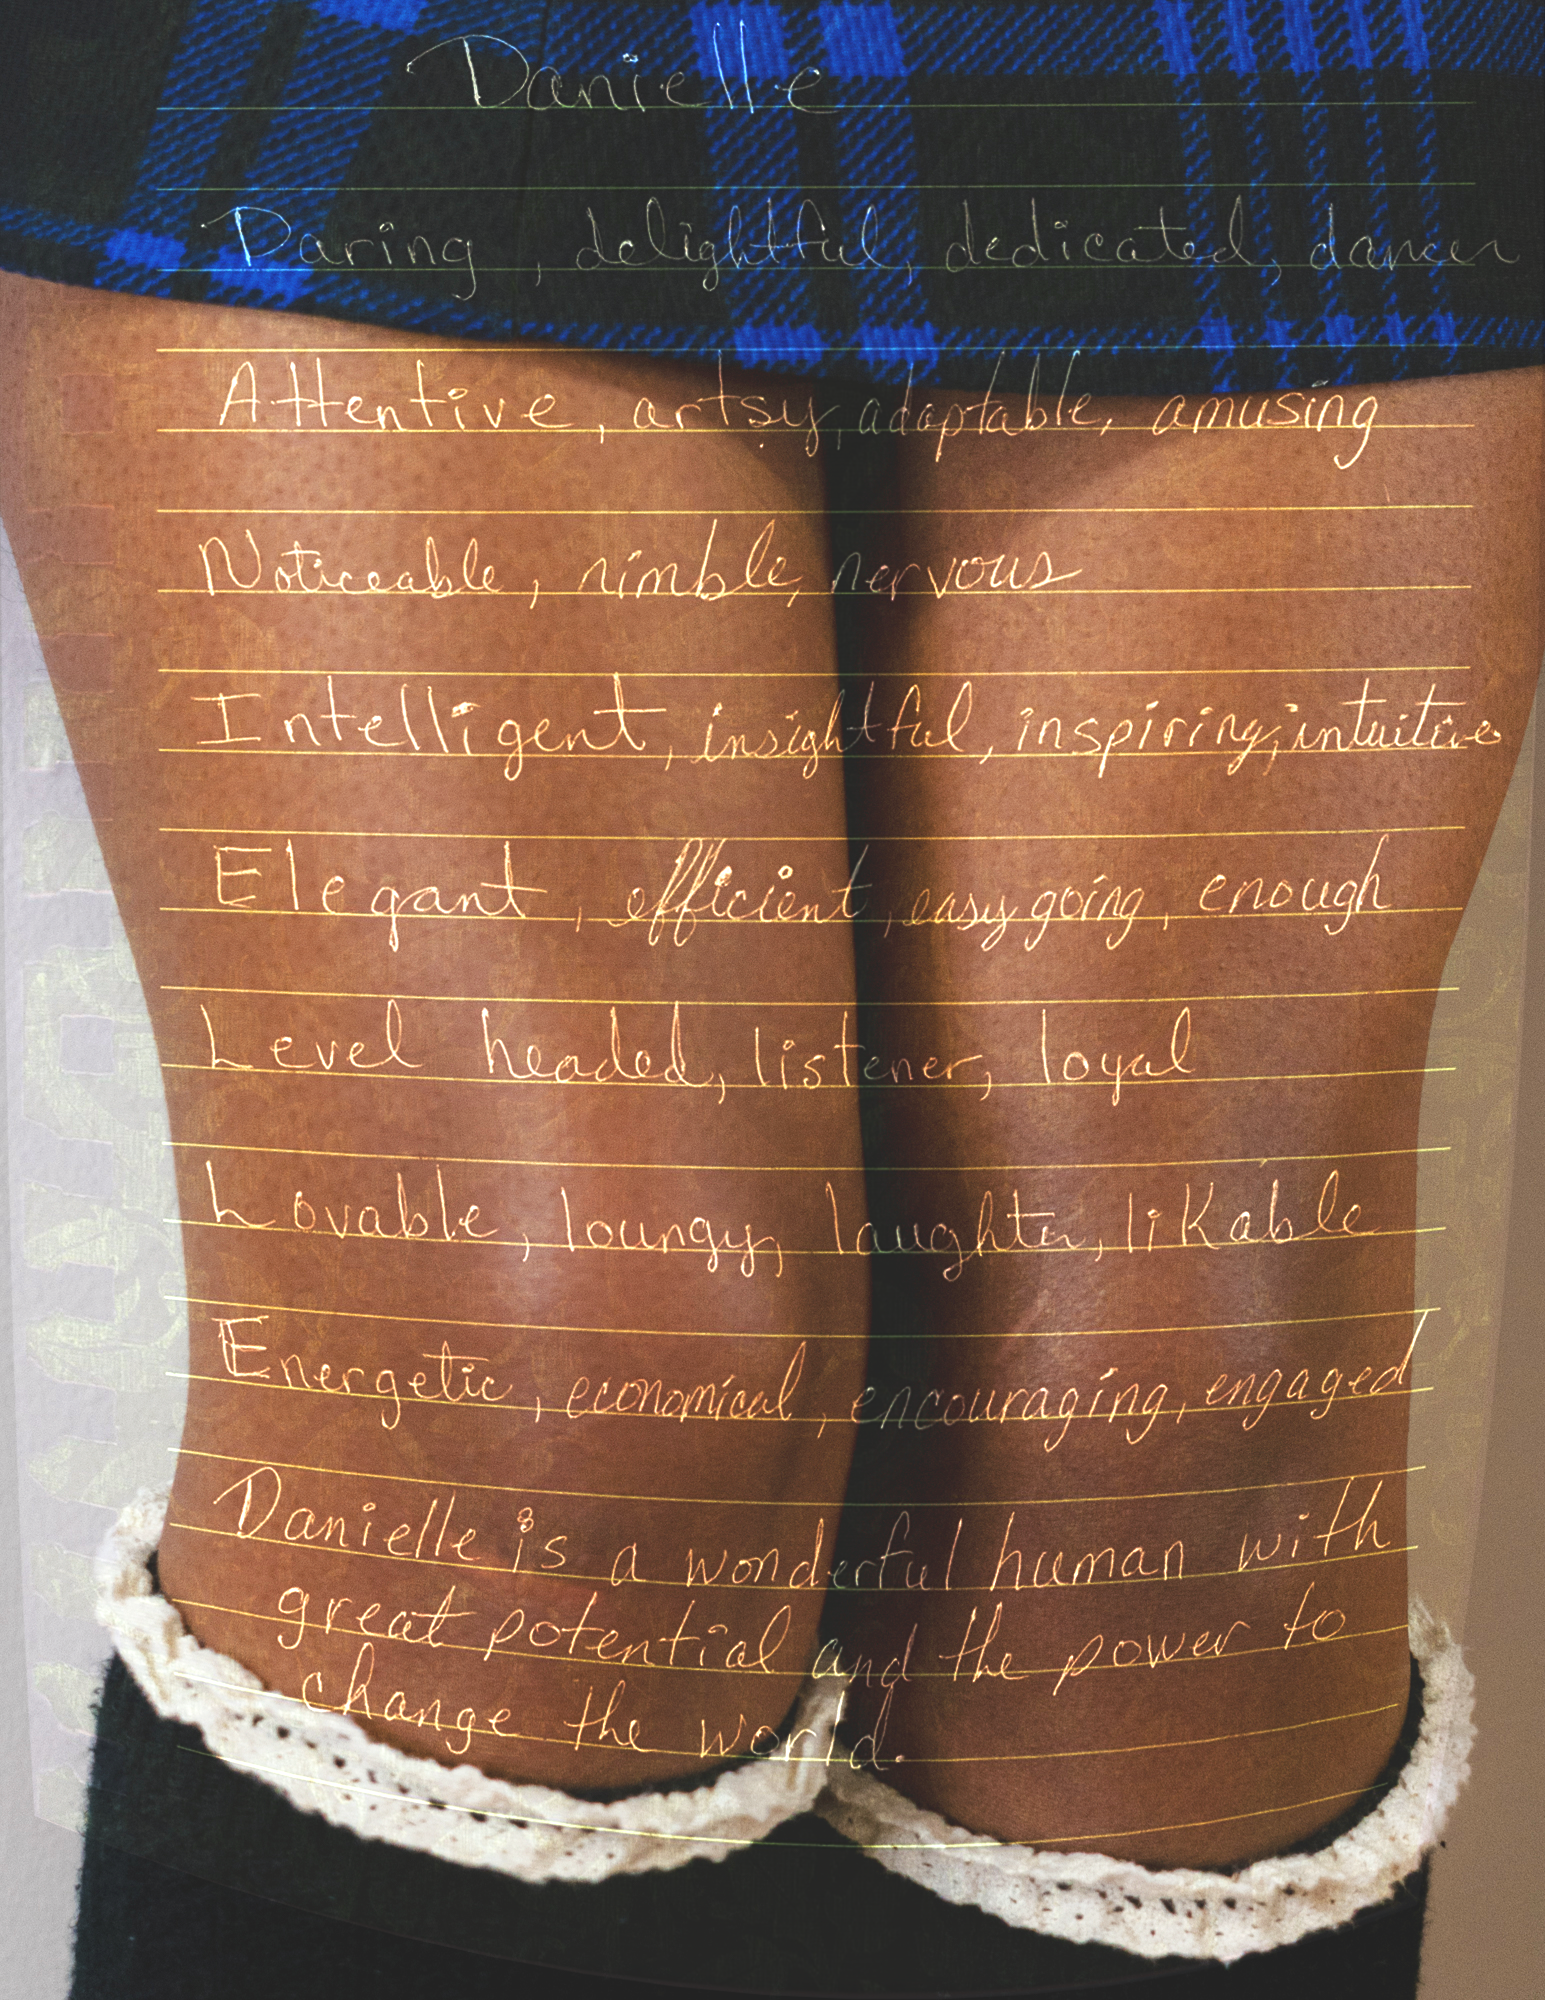 Danielle
Daring, delightful, dedicated, dancer
Attentive, artsy, adaptable, amusing
Noticeable, nimble, nervous
Intelligent, insightful, inspiring, intuitive
Elegant, efficient, easy going, enough
Level headed, listener, loyal
Lovable, loungy, laughter, likable
Energetic, economical, encouraging, engaged
Danielle is a wonderful human with
great potential and the power to
change the world.